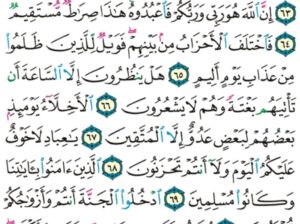 ٦٣ إِنَّ ٱللَّهَ هُوَ رَبِّى وَرَبُّكُمْ فَٱعْبُدُوهُ هَٰذَا صِرَٰطٌ مُّسْتَقِيمٌ
٦٤ فَٱخْتَلَفَ ٱلْأَحْزَابُ مِنۢ بَيْنِهِمْ فَوَيْلٌ لِّلَّذِينَ ظَلَمُوا۟
مِنْ عَذَابِ يَوْمٍ أَلِيمٍ ٦٥ هَلْ يَنظُرُونَ إِلَّا ٱلسَّاعَةَ أَن
تَأْتِيَهُم بَغْتَةً وَهُمْ لَا يَشْعُرُونَ ٦٦ ٱلْأَخِلَّآءُ يَوْمَئِذٍۭ
بَعْضُهُمْ لِبَعْضٍ عَدُوٌّ إِلَّا ٱلْمُتَّقِينَ ٦٧ يَٰعِبَادِ لَا خَوْفٌ
عَلَيْكُمُ ٱلْيَوْمَ وَلَآ أَنتُمْ تَحْزَنُونَ ٦٨ ٱلَّذِينَ ءَامَنُوا۟ بِـَٔايَٰتِنَا
وَكَانُوا۟ مُسْلِمِينَ ٦٩ ٱدْخُلُوا۟ ٱلْجَنَّةَ أَنتُمْ وَأَزْوَٰجُكُمْ